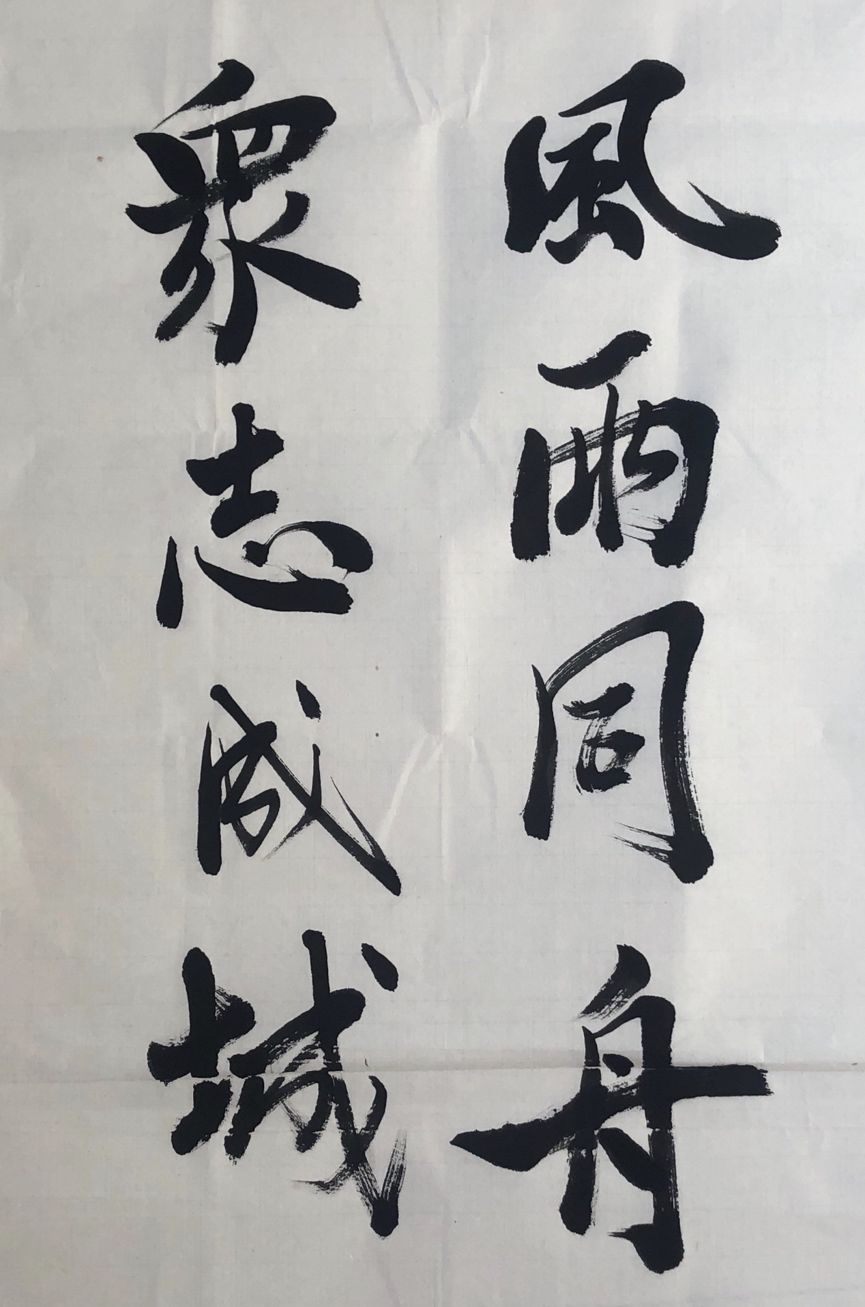 風雨同舟
衆志成城